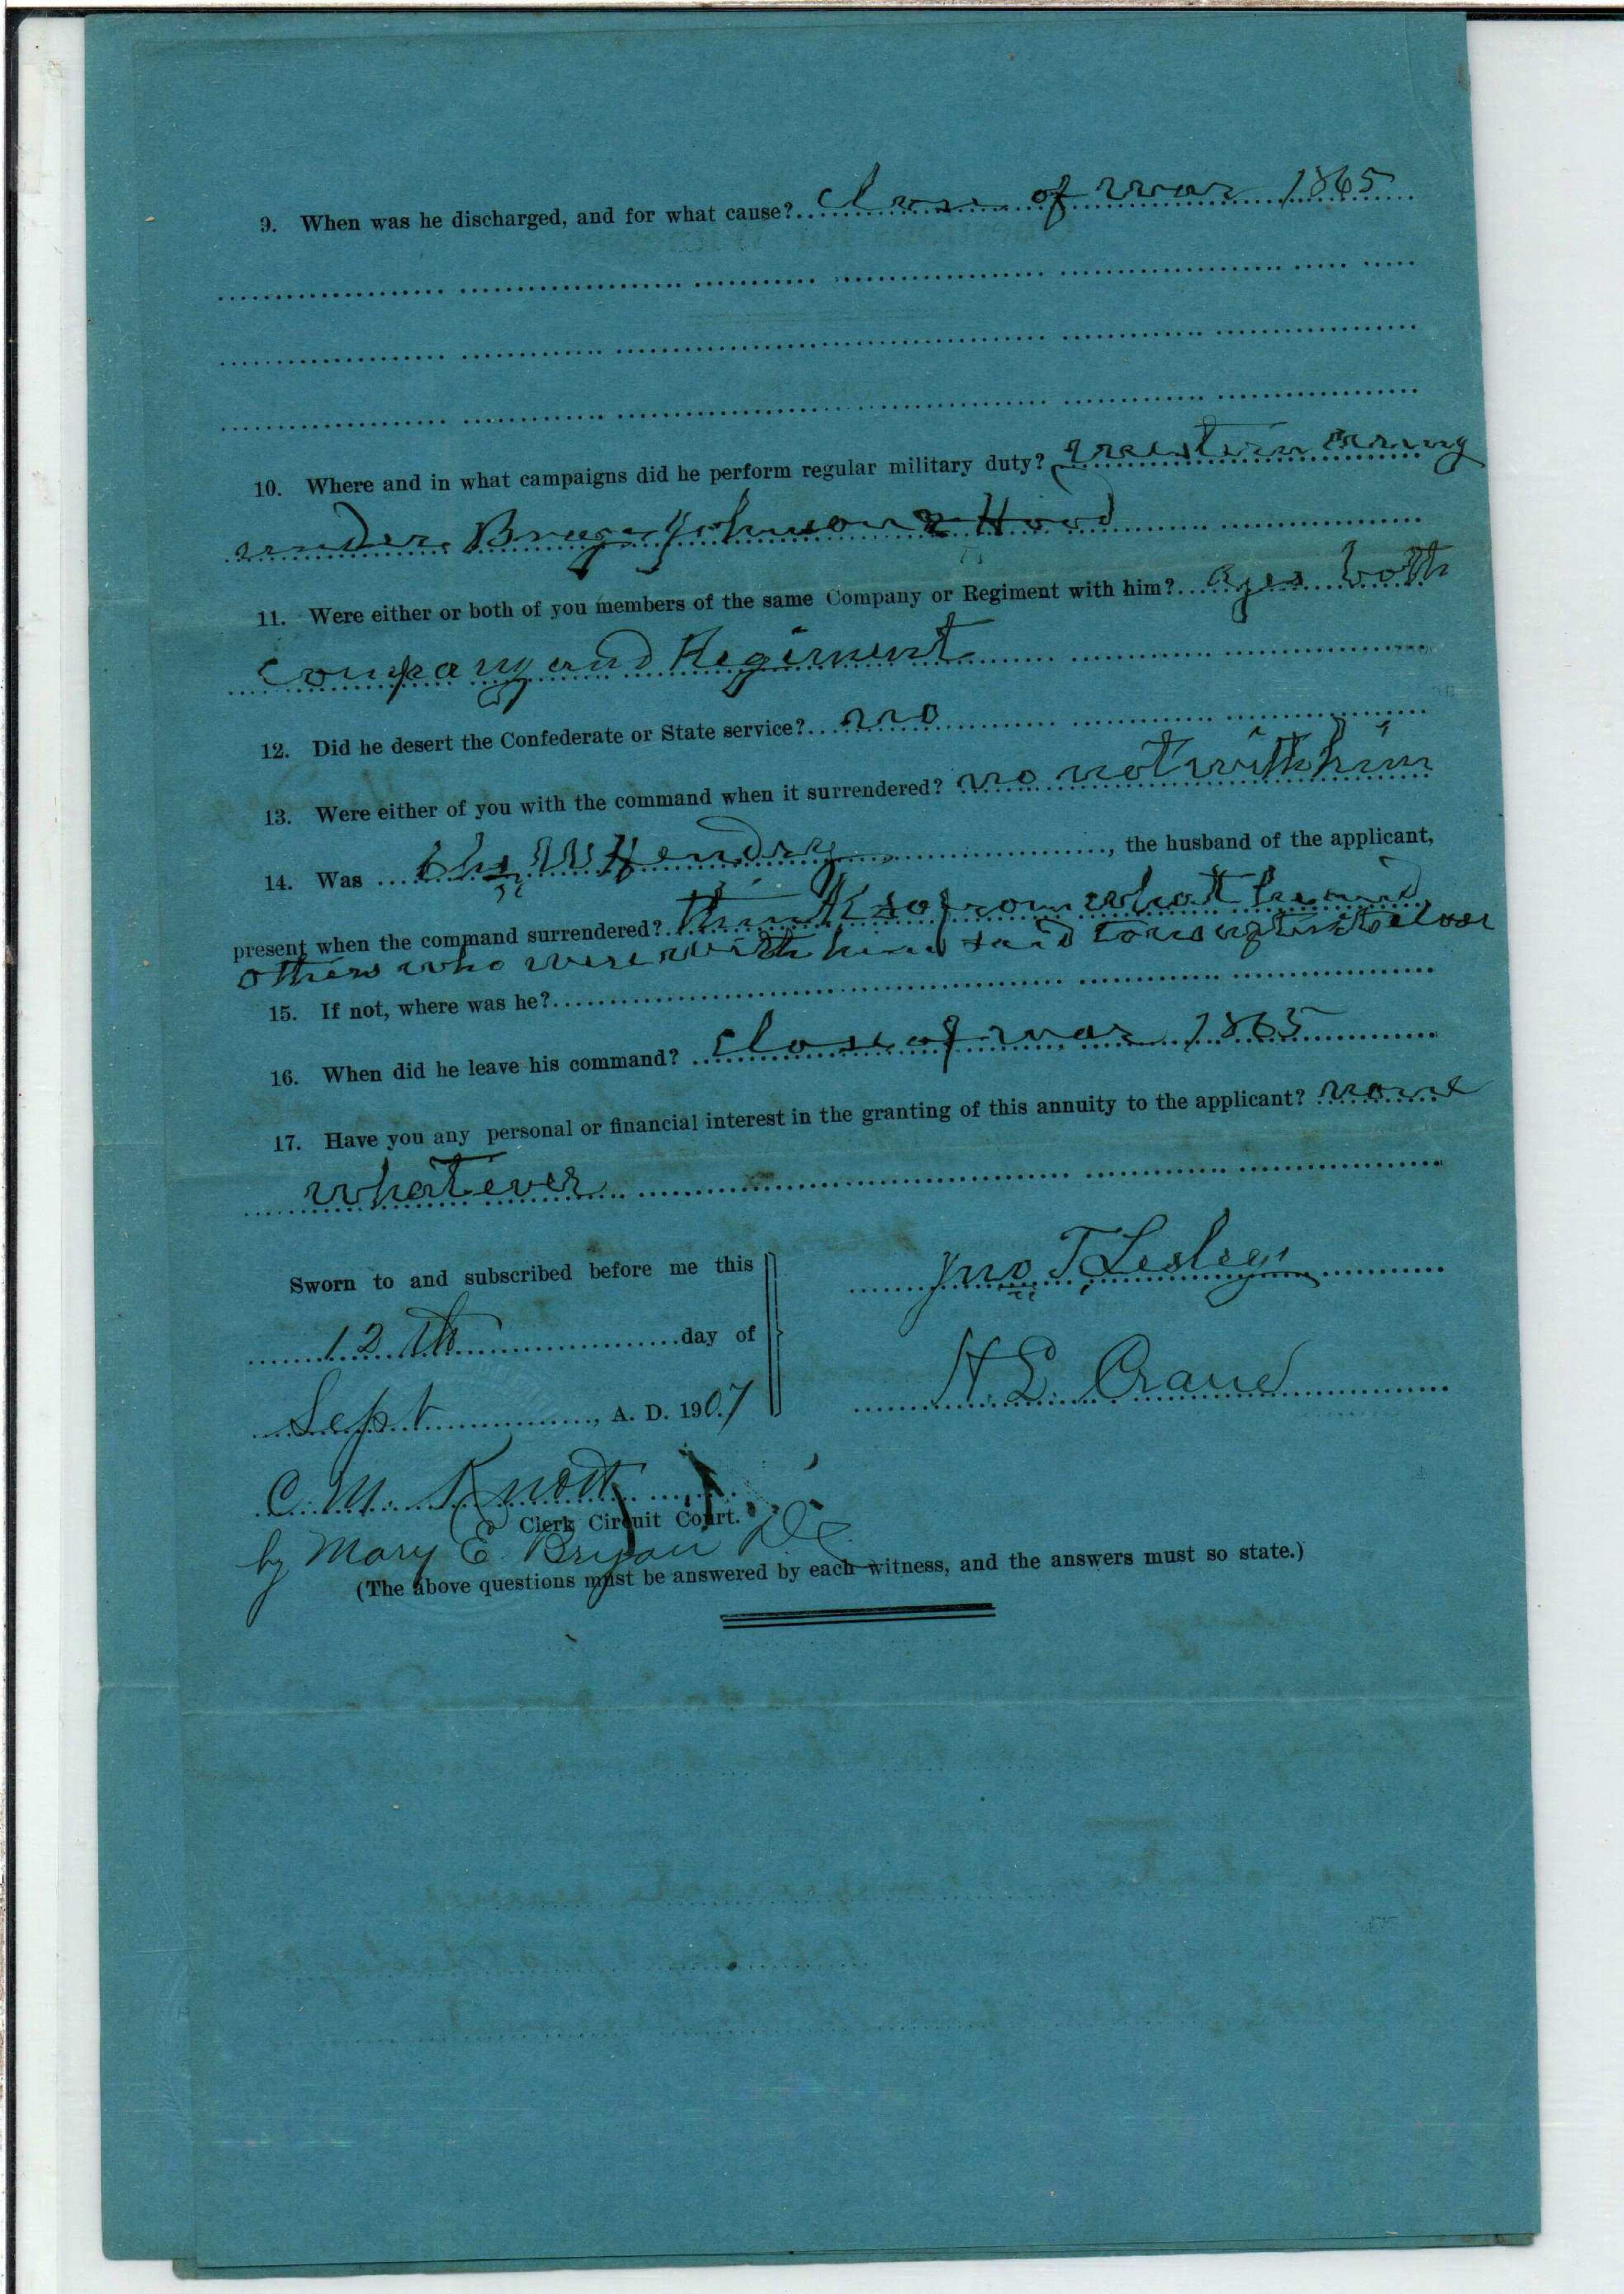 9. When was he discharged, and for what cause? Close of war 1865
10. Where and in what campaigns did he perform regular military duty? western army
under Bragg Johnson & Hood
11. Were either or both of you members of the same Company or Regiment with him? yes both
company and Regiment
12. Did he desert the Confederate or State service? no
13. Were either of you with the command when it surrendered? no not with him
14. Was W Hendry, the husband of the applicant,
present when the command surrendered? think so from what he and
others who were with him said to us
15. If not, where was he?
16. When did he leave his command? close of war 1865
17. Have you any personal or financial interest in the granting of this annuity to the applicant? none
whatever
Sworn to and subscribed before me this
Jno T Lesley
12th day of
H. L. Crane
Sept, A. D. 1907
C. M. Knott
Clerk Circuit Court.
by Mary E. Bryan D.C.
(The above questions must be answered by each witness, and the answers must so state.)